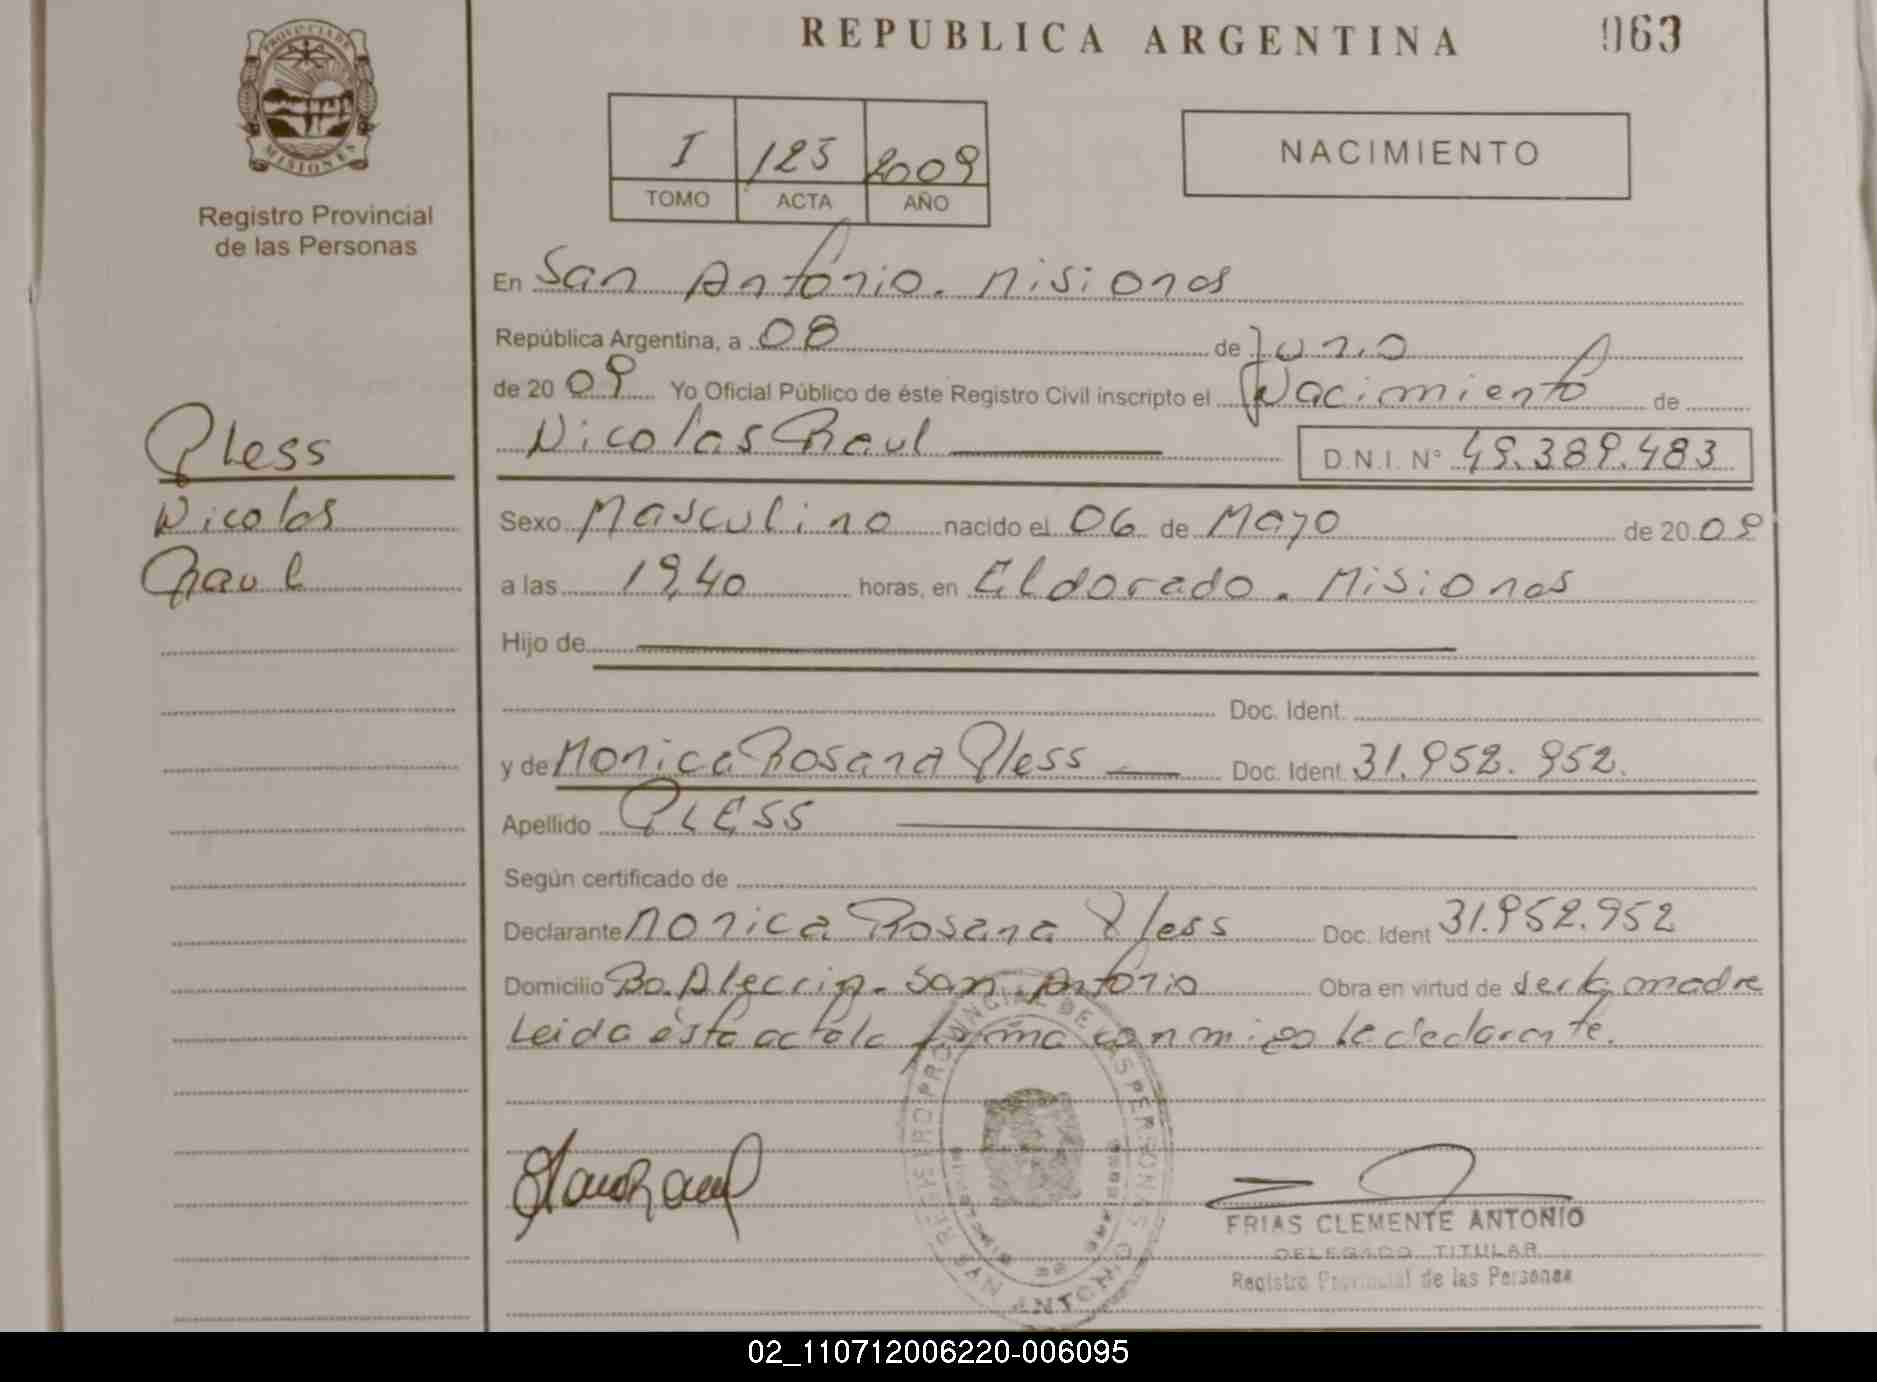 REPUBLICA ARGENTINA
963
PROVINCIA DE
MISIONES
Registro Provincial
de las Personas
I 125 2009
TOMO ACTA AÑO
NACIMIENTO
En San Antonio. Misiones
República Argentina, a 08 de Junio
de 2009 Yo Oficial Público de éste Registro Civil inscripto el Nacimiento de
Nicolas Raul D.N.I. Nº 49.389.483
Pless
Nicolas
Raul
Sexo Masculino nacido el 06 de Mayo de 2009
a las 19,40 horas, en Eldorado. Misiones
Hijo de
Doc. Ident.
y de Monica Rosana Pless Doc. Ident. 31.952.952.
Apellido PLESS
Según certificado de
Declarante Monica Rosana Pless Doc. Ident 31.952.952
Domicilio Bo. Alecrin. San Antonio Obra en virtud de madre
Leida ésta acta la firma conmigo la declarante.
REGISTRO PROVINCIAL DE LAS PERSONAS
SAN ANTONIO
FRIAS CLEMENTE ANTONIO
DELEGADO TITULAR
Registro Provincial de las Personas
02_110712006220-006095